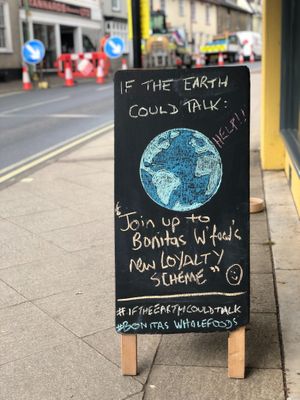 IF THE EARTH
COULD TALK:
HELP!!
"Join up to
Bonitas W'food's
new LOYALTY
SCHEME"
#IFTHEEARTHCOULDTALK
#BONITAS WHOLEFOODS